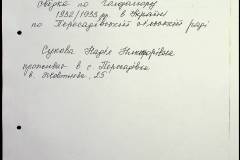 Сверка по Голодомору
1932/1933 рр. в Україні
по Пересадівській сільській раді
Сукова Надія Никифорівна
проживає в с. Пересадівка
в. Жовтнева 25